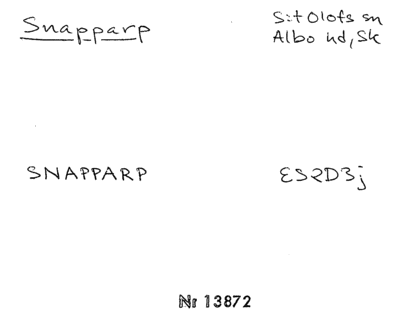 Snapparp
S:t Olofs sn
Albo hd, Sk
SNAPPARP
ES2D3j
Nr 13872